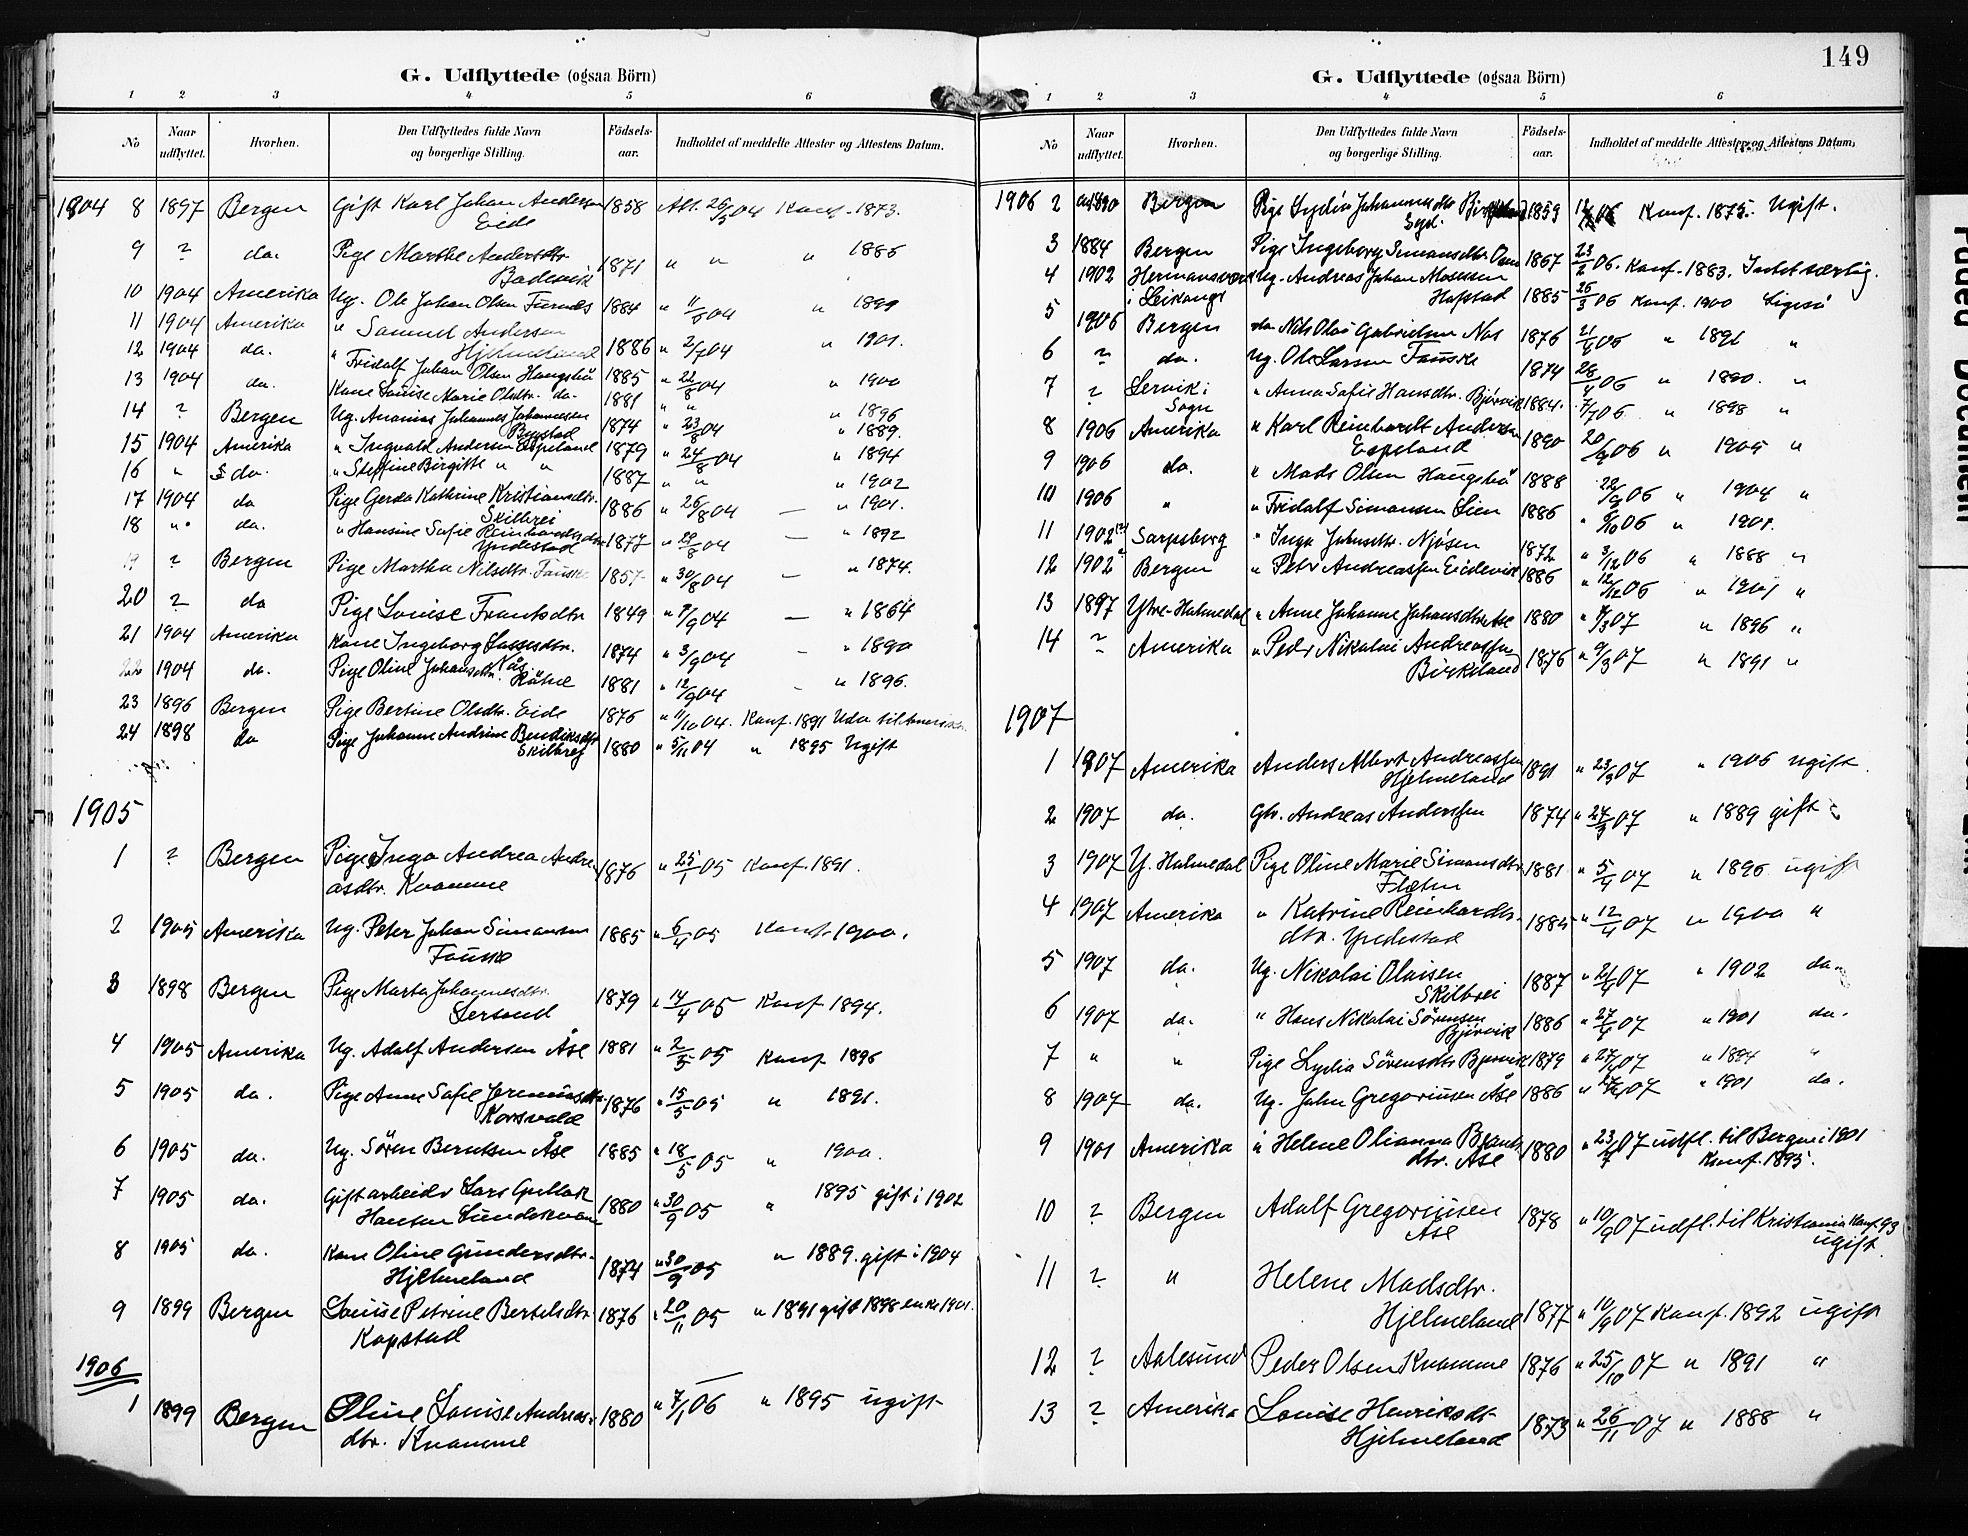 149
G. Udflyttede (ogsaa Börn)
1 2 3 4 5 6
No Naar udflyttet. Hvorhen. Den Udflyttedes fulde Navn og borgerlige Stilling. Födsels-aar. Indholdet af meddelte Attester og Attestens Datum.
1904 8 1897 Bergen Gift Karl Johan Andersen 1858 Att. 26/5 04 Konf. 1873.
Eide
9 ? da. Pige Marthe Andersdtr. 1871 " " " 1885
10 1904 Amerika Ug. Ole Johan Olsen Furnes 1884 " 11/ 04 " 1899
11 1904 Amerika " Samuel Andersen
Hjelmeland 1886 " 2/7 04 " 1901.
12 1904 da. " Fridolf Johan Olsen Haugsbö 1885 " 22/8 04 " 1900
13 1904 da. Kone Louise Marie Olsdtr. da. 1881 " " " 1896
14 ? Bergen Ug. Ananias Johannes Johannesen 1874 " 23/8 04 " 1889.
Bygstad
15 1904 Amerika " Ingvald Andersen Espeland 1879 " 24/8 04 " 1894
16 " da. " Steffine Birgitte " " 1887 " " " 1902
17 1904 da Pige Gerda Kathrine Kristiansdtr. 1886 " 26/8 04 — " 1901.
Skilbrei
18 " da. " Hansine Sofie Reinhardtsdtr 1877 " 29/8 04 — " 1892
Yndestad
19 ? Bergen Pige Martha Nilsdtr. Fauske 1857 " 30/8 04 — " 1874.
20 ? da Pige Louise Frantsdtr 1849 " 9/9 04 — " 1864
21 1904 Amerika Kone Ingeborg Lassesdtr. 1874 " 3/9 04 - " 1890
Nås
22 1904 da. Pige Oline Johansdtr. 1881 " 12/9 04 - " 1896.
23 1896 Bergen Pige Bertine Olsdtr. Eide 1876 " 11/10 04. Konf. 1891 Uda til Amerika
24 1898 da Pige Johanne Andrine Bendiksdtr 1880 " 5/11 04 " 1895 Ugift
Skilbrej
1905
1 ? Bergen Pige Inga Andrea Andre- 1876 " 25/1 05 Konf. 1891.
asdtr. Kvamme
2 1905 Amerika Ug. Peter Johan Simonsen 1885 " 6/4 05 Konf. 1900.
Fauske
3 1898 Bergen Pige Marta Johannesdtr. 1879 " 14/4 05 Konf 1894.
4 1905 Amerika Ug. Adolf Andersen Åse 1881 " 2/5 05 Konf 1896
5 1905 da. Pige Anne Sofie Jeremiasdtr. 1876 " 15/5 05 " 1891.
Korsvold
6 1905 da. Ug. Sören Berntsen Åse 1885 " 18/5 05 " 1900.
7 1905 da. Gift arbeider Lars Gullak 1880 " 30/9 05 " 1895 gift i 1902
Hansen
8 1905 da. Kone Oline Gundersdtr. 1874 " 30/9 05 " 1889. gift i 1904
Hjelmeland
9 1899 Bergen Louise Petrine Bertelsdtr. 1876 " 20/11 05 " 1891 gift 1898 enke 1901.
Kopstad
1906
1 1899 Bergen Oline Louise Andreas- 1880 " 7/1 06 " 1895 ugift
dtr. Kvamme
G. Udflyttede (ogsaa Börn)
1 2 3 4 5 6
No Naar udflyttet. Hvorhen. Den Udflyttedes fulde Navn og borgerlige Stilling. Födsels-aar. Indholdet af meddelte Attester og Attestens Datum.
1906 2 1890 Bergen Pige Lydia Johannesdtr 1859 06 Konf. 1875. Ugift.
3 1884 Bergen Pige Ingeborg Simonsdtr. 1867 23/2 06. Konf. 1883. Intet særlig.
4 1902 Hermansverk Ug. Andreas Johan Mosessen
i Leikanger Hafstad 1885 26/3 06 Konf. 1900 Ligeså
5 1906 Bergen da Nils Olai Gabrielsen Nos 1876 21/4 06 " 1891 "
6 ? da. Ug. Ole Larsen Fauske 1874 28/4 06 " 1890. "
7 ? Lervik i " Anna Sofie Hansdtr. Bjørvik 1884. 7/7 06 " 1898 "
Sogn
8 1906 Amerika " Karl Reinhardt Andersen 1890 20/9 06 " 1905 "
Espeland
9 1906 da. " Mads Olsen Haugsbö 1888 22/9 06 " 1904 "
10 1906 " " Fridolf Simonsen Lien 1886 " 6/10 06 " 1901.
11 1902 Sarpsborg " Inga Johnsdtr. Njøsen 1872 " 3/12 06 " 1888 "
12 1902 Bergen " Peder Andreassen Eidevik 1886 " 12/12 06 " 1901 "
13 1897 Ytre-Holmedal " Anne Johanne Johansdtr Åse 1880 " 9/3 07 " 1896 "
14 ? Amerika " Peder Nikolai Andreassen 1876 " 9/3 07 " 1891 "
Birkeland
1907
1 1907 Amerika Anders Albert Andreassen 1891 " 23/3 07 " 1906 ugift
Hjelmeland
2 1907 da. Gbr. Andreas Anderssen 1874 " 27/3 07 " 1889 gift
3 1907 Y. Holmedal Pige Oline Marie Simonsdtr. 1881 " 5/4 07 " 1896 ugift
Flæten
4 1907 Amerika " Katrine Reinhardts- 1885 " 12/4 07 " 1900 "
dtr. Yndestad
5 1907 da. Ug. Nikolai Olaisen 1887 " 21/4 07 " 1902 da.
Skilbrei
6 1907 da. " Hans Nikolai Sørensen 1886 " 27/4 07 " 1901 da.
Bjørvik
7 " " Pige Lydia Sörensdtr Bjørvik 1879 " 27/ 07 " 1894 "
8 1907 da. Ug. John Gregoriusen Åse 1886 " 07 " 1901 da.
9 1901 Amerika " Helene Olianna Bernts- 1880 " 23/7 07 udfl. til Bergen i 1901
dtr. Åse Konf. 1895.
10 ? Bergen Adolf Gregoriusen 1878 " 10/9 07 udfl. til Kristiania Konf. 93
Åse ugift.
11 ? " Helene Madsdtr.
Hjelmeland 1877 " 10/9 07 Konf. 1892 ugift
12 ? Aalesund Peder Olsen Kvamme 1876 " 25/10 07 " 1891 "
13 ? Amerika Louise Henriksdt 1873 " 26/11 07 " 1888 "
Hjelmeland